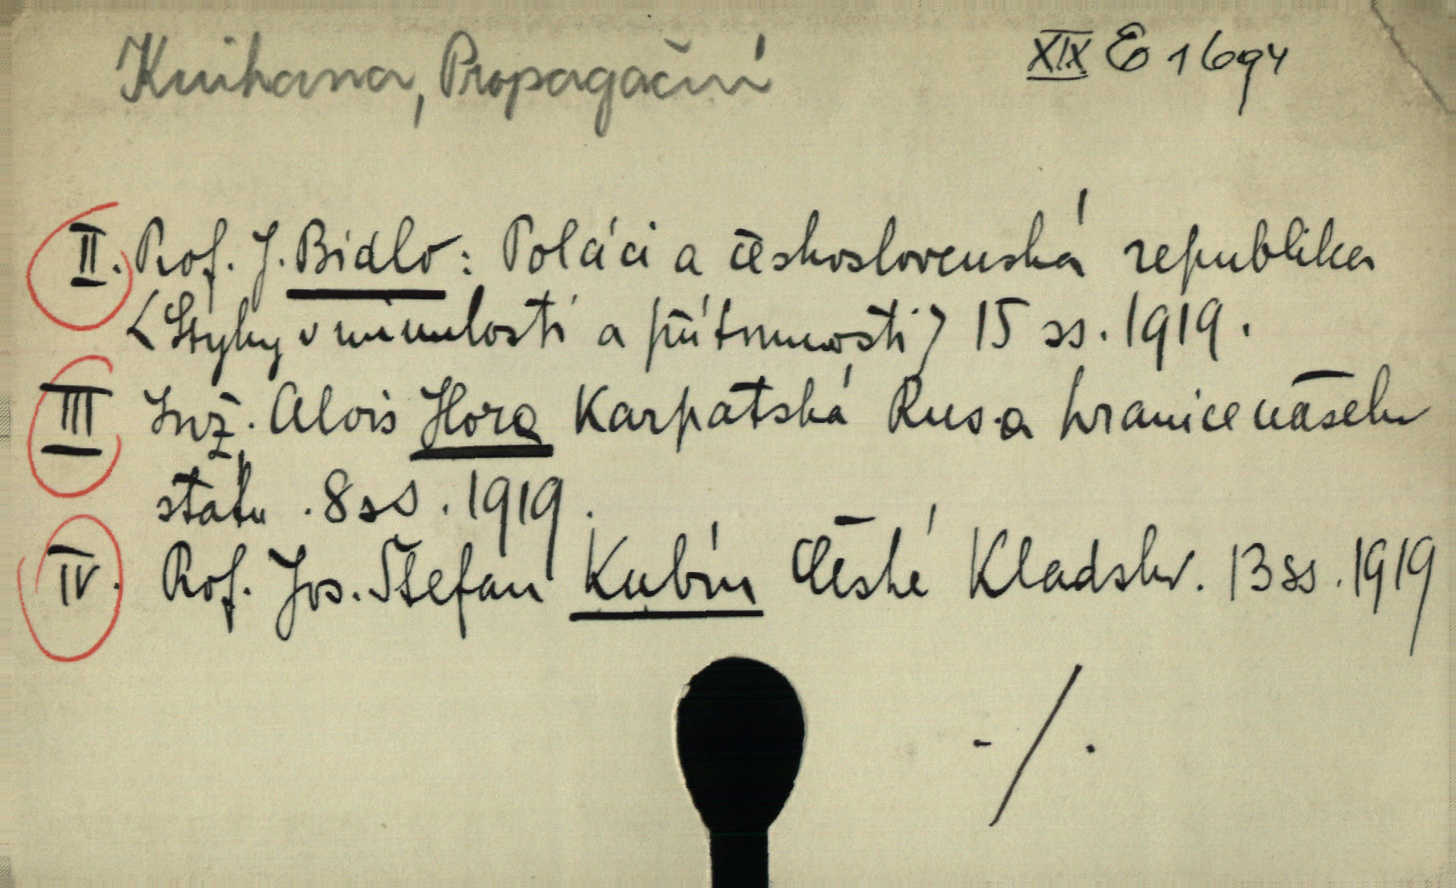 Knihovna, Propagační
XIX E 1694
II. Prof. J. Bidlo: Poláci a československá republika
(Styky v minulosti a přítomnosti) 15 ss. 1919.
III Inž. Alois Hora Karpatská Rus a hranice našeho
státu. 8 ss. 1919.
IV. Prof. Jos. Štefan Kubín České Kladsko. 13 ss. 1919
-/.